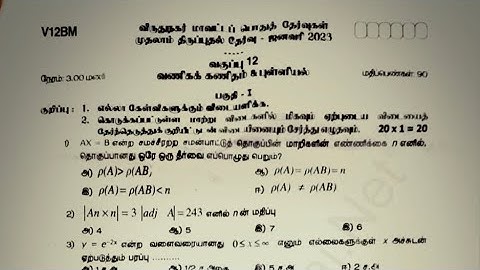 V12BM
விருதுநகர் மாவட்டப் பொதுத் தேர்வுகள்
முதலாம் திருப்புதல் தேர்வு - ஜனவரி 2023
வகுப்பு 12
நேரம்: 3.00 மணி
வணிகக் கணிதம் & புள்ளியியல்
மதிப்பெண்கள்: 90
பகுதி - I
குறிப்பு : 1. எல்லா கேள்விகளுக்கும் விடையளிக்க.
2. கொடுக்கப்பட்டுள்ள மாற்று விடைகளில் மிகவும் ஏற்புடைய விடையைத்
தேர்ந்தெடுத்துக் குறியீட்டுடன் விடையினையும் சேர்த்து எழுதவும். 20 x 1 = 20
1) AX = B என்ற சமச்சீரற்ற சமன்பாட்டுத் தொகுப்பின் மாறிகளின் எண்ணிக்கை n எனில்,
தொகுப்பானது ஒரே ஒரு தீர்வை எப்பொழுது பெறும்?
அ) ρ(A) > ρ(AB)
ஆ) ρ(A) = ρ(AB) = n
இ) ρ(A) = ρ(AB) < n
ஈ) ρ(A) ≠ ρ(AB)
2) |An × n| = 3 |adj A| = 243 எனில் n ன் மதிப்பு
அ) 4 ஆ) 5 இ) 7 ஈ) 6
3) y = e⁻²ˣ என்ற வளைவரையானது 0 ≤ x ≤ ∞ எனும் எல்லைகளுக்குள் x அச்சுடன்
ஏற்படுத்தும் பரப்பு